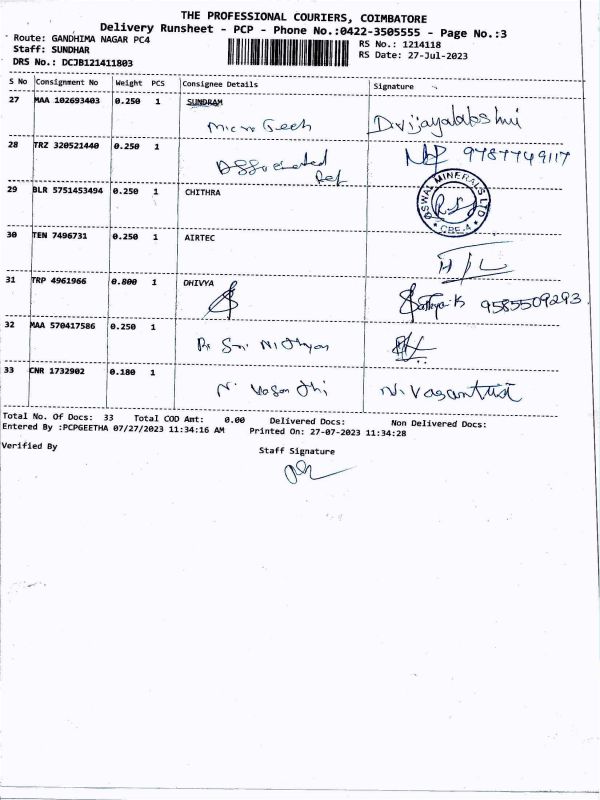 THE PROFESSIONAL COURIERS, COIMBATORE
Delivery Runsheet - PCP - Phone No.:0422-3505555 - Page No.:3
Route: GANDHIMA NAGAR PC4
RS No.: 1214118
Staff: SUNDHAR
RS Date: 27-Jul-2023
DRS No.: DCJB121411803
S No Consignment No Weight PCS Consignee Details Signature
27 MAA 102693403 0.250 1 SUNDRAM
Micro Tech D.vijayalakshmi
28 TRZ 320521440 0.250 1
Associated Ref 9787749117
29 BLR 5751453494 0.250 1 CHITHRA
OSWAL MINERALS LTD
CBE-4
30 TEN 7496731 0.250 1 AIRTEC
31 TRP 4961966 0.800 1 DHIVYA
Sathya.K 9585509293.
32 MAA 570417586 0.250 1
Sri Nithya
33 CNR 1732902 0.180 1
N. Vasanthi N. Vasanthi
Total No. Of Docs: 33 Total COD Amt: 0.00 Delivered Docs: Non Delivered Docs:
Entered By :PCPGEETHA 07/27/2023 11:34:16 AM Printed On: 27-07-2023 11:34:28
Verified By Staff Signature